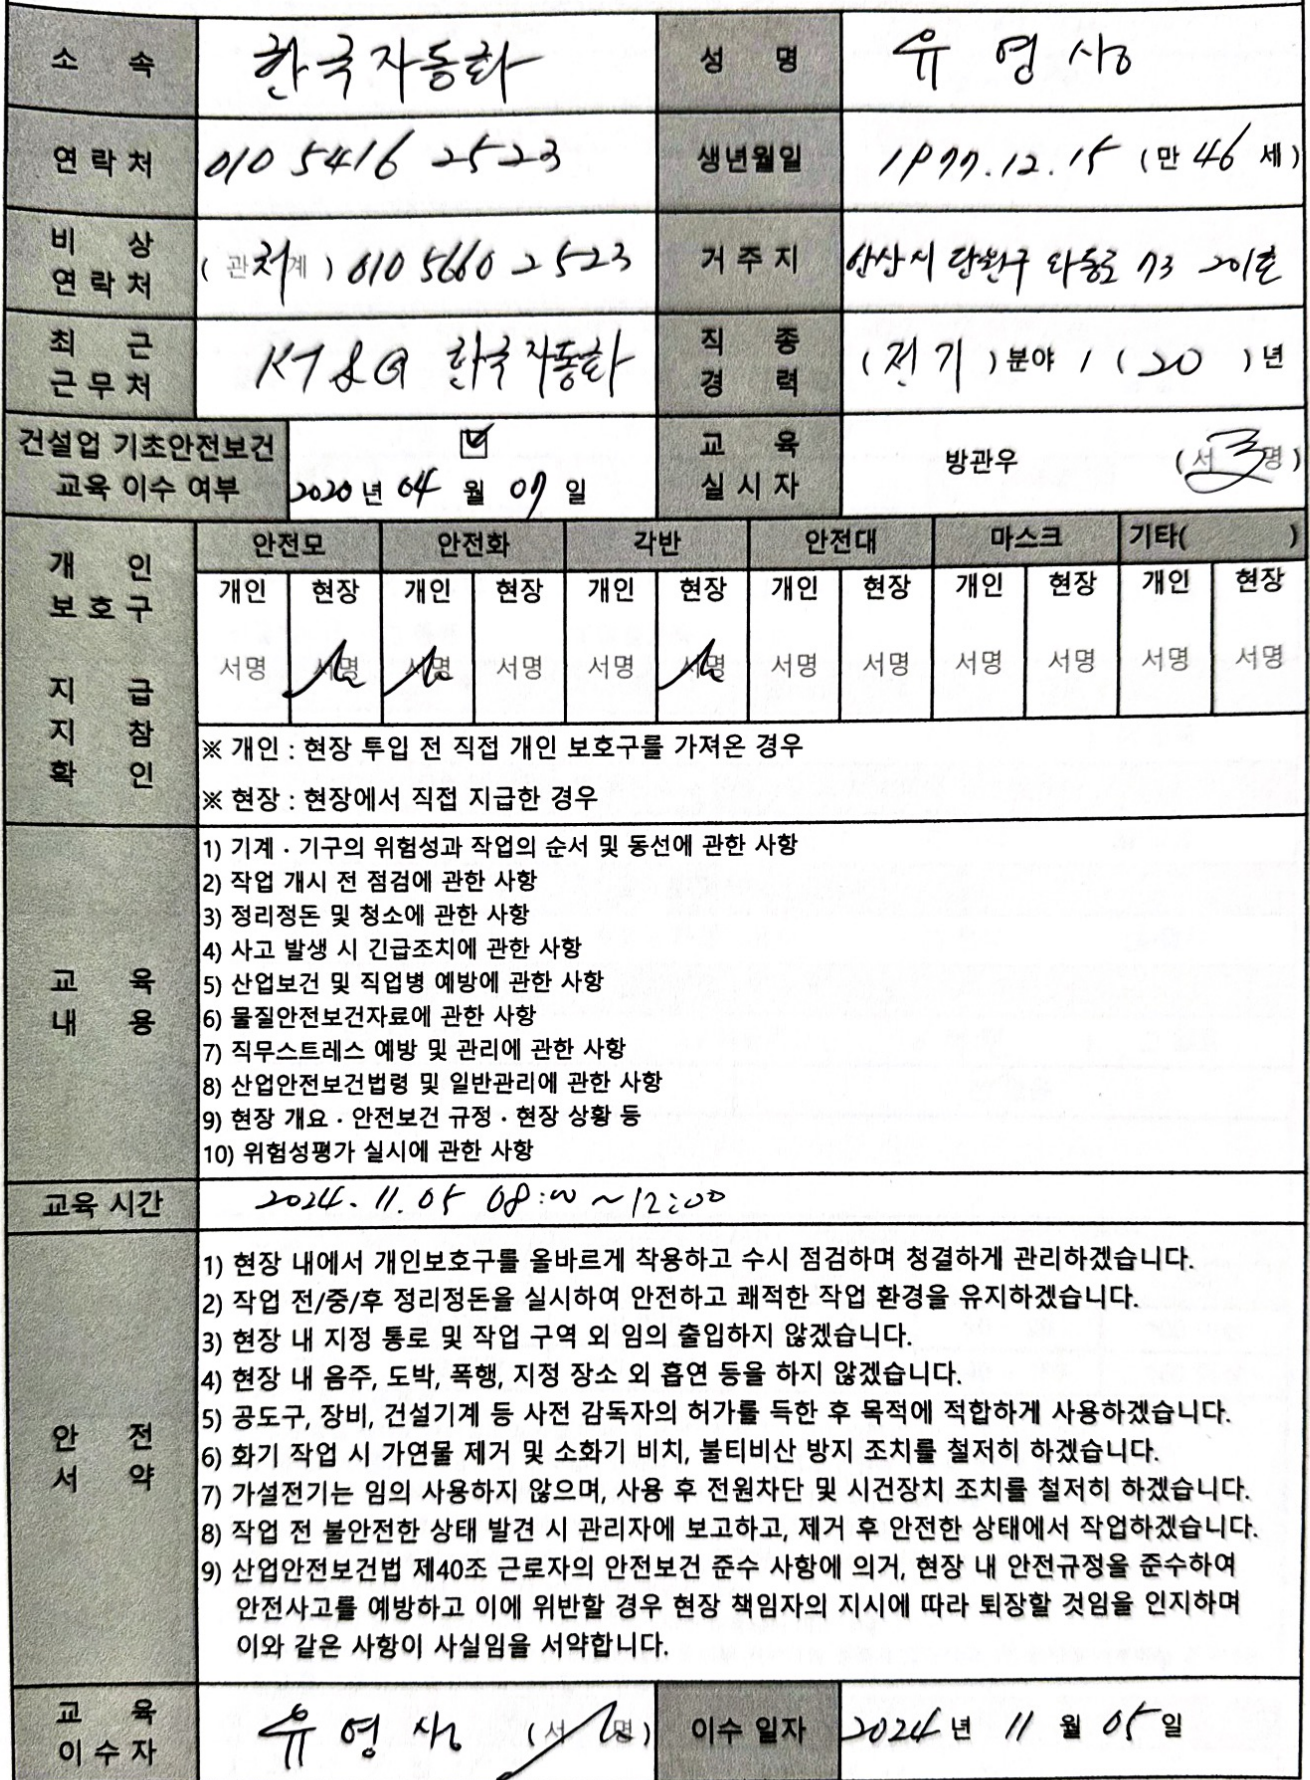 소 속 한국자동화 성 명 유 영 상
연락처 010 5416 2523 생년월일 1977.12.15 (만 46 세)
비 상 연락처 (관 처 계) 010 5660 2523 거주지 안산시 단원구 와동로 73 201호
최 근 근무처 KT&G 한국자동화 직 종 경 력 (전기)분야 / (20)년
건설업 기초안전보건 교육 이수 여부 ☑ 2020 년 04 월 07 일 교 육 실시자 방관우 (서명)
개 인 보호구 지 급 지 참 확 인
안전모 안전화 각반 안전대 마스크 기타( )
개인 현장 개인 현장 개인 현장 개인 현장 개인 현장 개인 현장
서명 서명 서명 서명 서명 서명 서명 서명 서명 서명 서명 서명
※ 개인 : 현장 투입 전 직접 개인 보호구를 가져온 경우
※ 현장 : 현장에서 직접 지급한 경우
교 육 내 용
1) 기계 · 기구의 위험성과 작업의 순서 및 동선에 관한 사항
2) 작업 개시 전 점검에 관한 사항
3) 정리정돈 및 청소에 관한 사항
4) 사고 발생 시 긴급조치에 관한 사항
5) 산업보건 및 직업병 예방에 관한 사항
6) 물질안전보건자료에 관한 사항
7) 직무스트레스 예방 및 관리에 관한 사항
8) 산업안전보건법령 및 일반관리에 관한 사항
9) 현장 개요 · 안전보건 규정 · 현장 상황 등
10) 위험성평가 실시에 관한 사항
교육 시간 2024. 11. 05 08:00 ~ 12:00
안 전 서 약
1) 현장 내에서 개인보호구를 올바르게 착용하고 수시 점검하며 청결하게 관리하겠습니다.
2) 작업 전/중/후 정리정돈을 실시하여 안전하고 쾌적한 작업 환경을 유지하겠습니다.
3) 현장 내 지정 통로 및 작업 구역 외 임의 출입하지 않겠습니다.
4) 현장 내 음주, 도박, 폭행, 지정 장소 외 흡연 등을 하지 않겠습니다.
5) 공도구, 장비, 건설기계 등 사전 감독자의 허가를 득한 후 목적에 적합하게 사용하겠습니다.
6) 화기 작업 시 가연물 제거 및 소화기 비치, 불티비산 방지 조치를 철저히 하겠습니다.
7) 가설전기는 임의 사용하지 않으며, 사용 후 전원차단 및 시건장치 조치를 철저히 하겠습니다.
8) 작업 전 불안전한 상태 발견 시 관리자에 보고하고, 제거 후 안전한 상태에서 작업하겠습니다.
9) 산업안전보건법 제40조 근로자의 안전보건 준수 사항에 의거, 현장 내 안전규정을 준수하여
안전사고를 예방하고 이에 위반할 경우 현장 책임자의 지시에 따라 퇴장할 것임을 인지하며
이와 같은 사항이 사실임을 서약합니다.
교 육 이수자 유 영 상 (서명) 이수 일자 2024 년 11 월 05 일